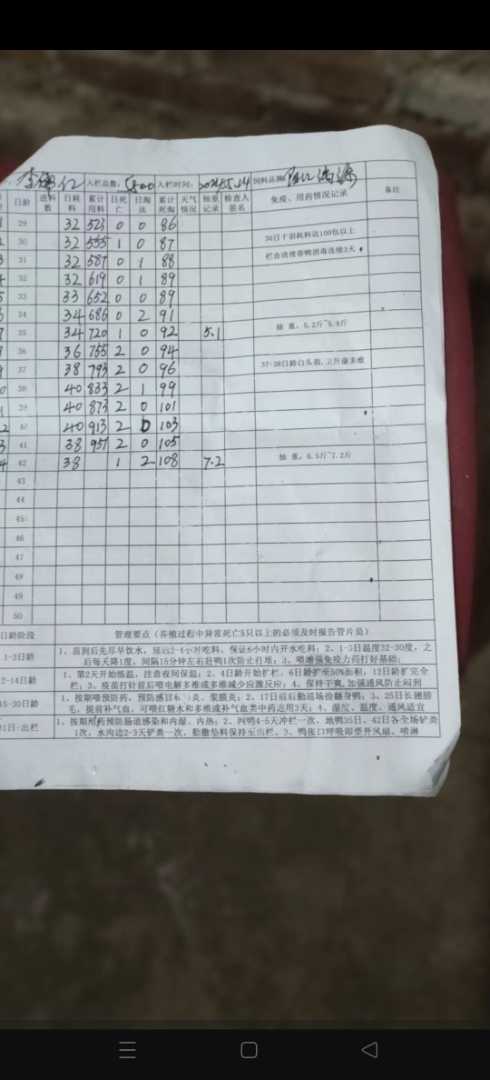 入栏总数: 5800 入栏时间: 2024.5.14 饲料品牌
日龄 进料数 日耗料 累计用料 日死亡 日淘汰 累计死淘 天气情况 抽重记录 检查人签名 免疫、用药情况记录 备注
29 32 523 0 0 86
30 32 555 1 0 87 30日子羽耗料达100包以上
31 32 587 0 1 88 栏舍清理带鸭消毒连续3天
32 32 619 0 1 89
33 33 652 0 0 89
34 34 686 0 2 91
35 34 720 1 0 92 5.1 抽重:5.2斤~5.4斤
36 36 755 2 0 94
37 38 793 2 0 96 37-38日龄白头翁,立升康多维
38 40 833 2 1 99
39 40 873 2 0 101
40 40 913 2 0 103
41 38 951 2 0 105
42 38 1 2 108 7.2 抽重:6.5斤~7.2斤
43
44
45
46
47
48
49
50
日龄阶段 管理要点(养殖过程中异常死亡5只以上的必须及时报告管片员)
1-3日龄 1、苗到后先尽早饮水,延迟2-4小时吃料,保证6小时内开水吃料;2、1-3日温度32-30度,之
后每天降1度,间隔15分钟左右赶鸭1次防止打堆;3、喂增强免疫力药打好基础;
1、第2天开始低温,注意夜间保温;2、4日龄开始扩栏,6日龄扩至50%面积,12日龄扩完全
栏;3、疫苗打针前后喂电解多维或多维减少应激反应;4、保持干爽,加强通风防止闷到
15-30日龄 1、按期喂预防药,预防感冒、浆膜炎;2、17日后后勤巡场捡翻身鸭;3、25日长翅膀
毛,提前补气血,可喂红糖水和多维或补气血类中药连用3天;4、湿度、温度、通风适宜
31日-出栏 1、按期用药预防肠道感染和内湿、内热;2、网鸭4-5天冲栏一次,地鸭35日、42日各全场铲粪
1次,水沟边2-3天铲粪一次,勤撒垫料保持至出栏。3、鸭张口呼吸即要开风扇、喷淋